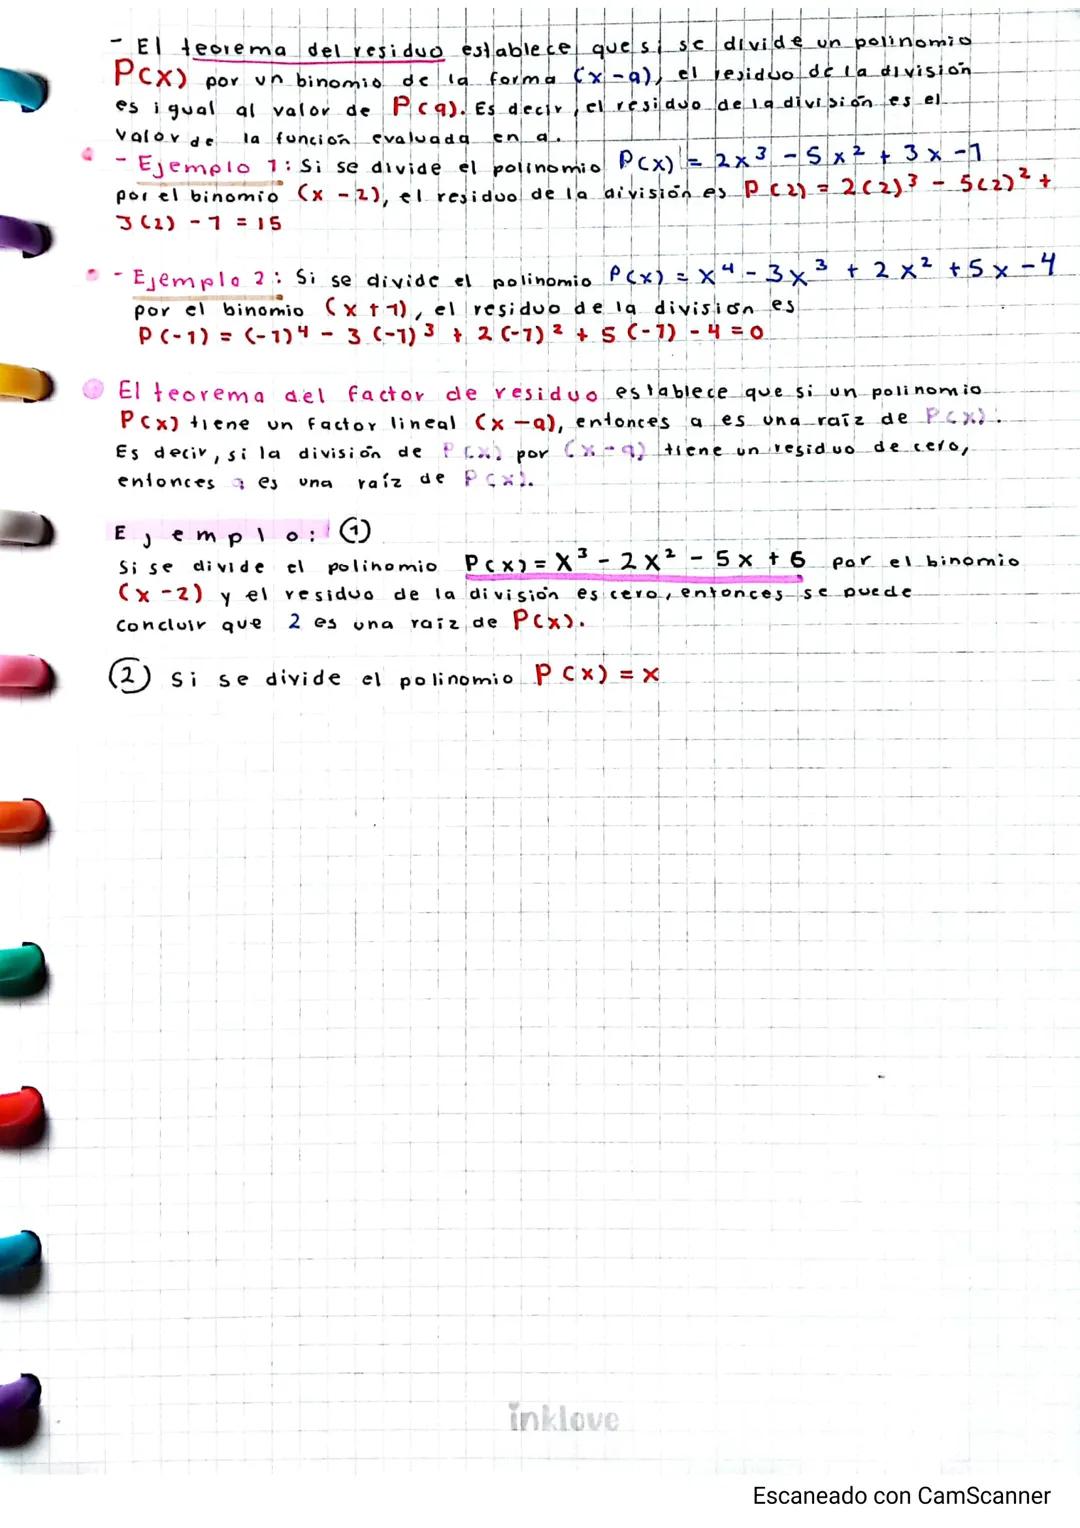 - El teorema del residuo establece que si se divide un polinomio
P(x) por un binomio de la forma (x-a), el residuo de la división
es igual al valor de P(a). Es decir, el residuo de la división es el
valor de la función evaluada en a.
- Ejemplo 1: Si se divide el polinomio P(x) = 2x³ - 5x² + 3x - 1
por el binomio (x - 2), el residuo de la división es P(2) = 2(2)³ - 5(2)² +
3(2) - 1 = 15
- Ejemplo 2: Si se divide el polinomio P(x) = x⁴ - 3x³ + 2x² + 5x - 4
por el binomio (x + 1), el residuo de la división es
P(-1) = (-1)⁴ - 3(-1)³ + 2(-1)² + 5(-1) - 4 = 0
El teorema del factor de residuo establece que si un polinomio
P(x) tiene un factor lineal (x - a), entonces a es una raíz de P(x).
Es decir, si la división de P(x) por (x - a) tiene un residuo de cero,
entonces a es una raíz de P(x).
Ejemplo: ①
Si se divide el polinomio P(x) = X³ - 2x² - 5x + 6 por el binomio
(x - 2) y el residuo de la división es cero, entonces se puede
concluir que 2 es una raíz de P(x).
② Si se divide el polinomio P(x) = x
inklove
Escaneado con CamScanner